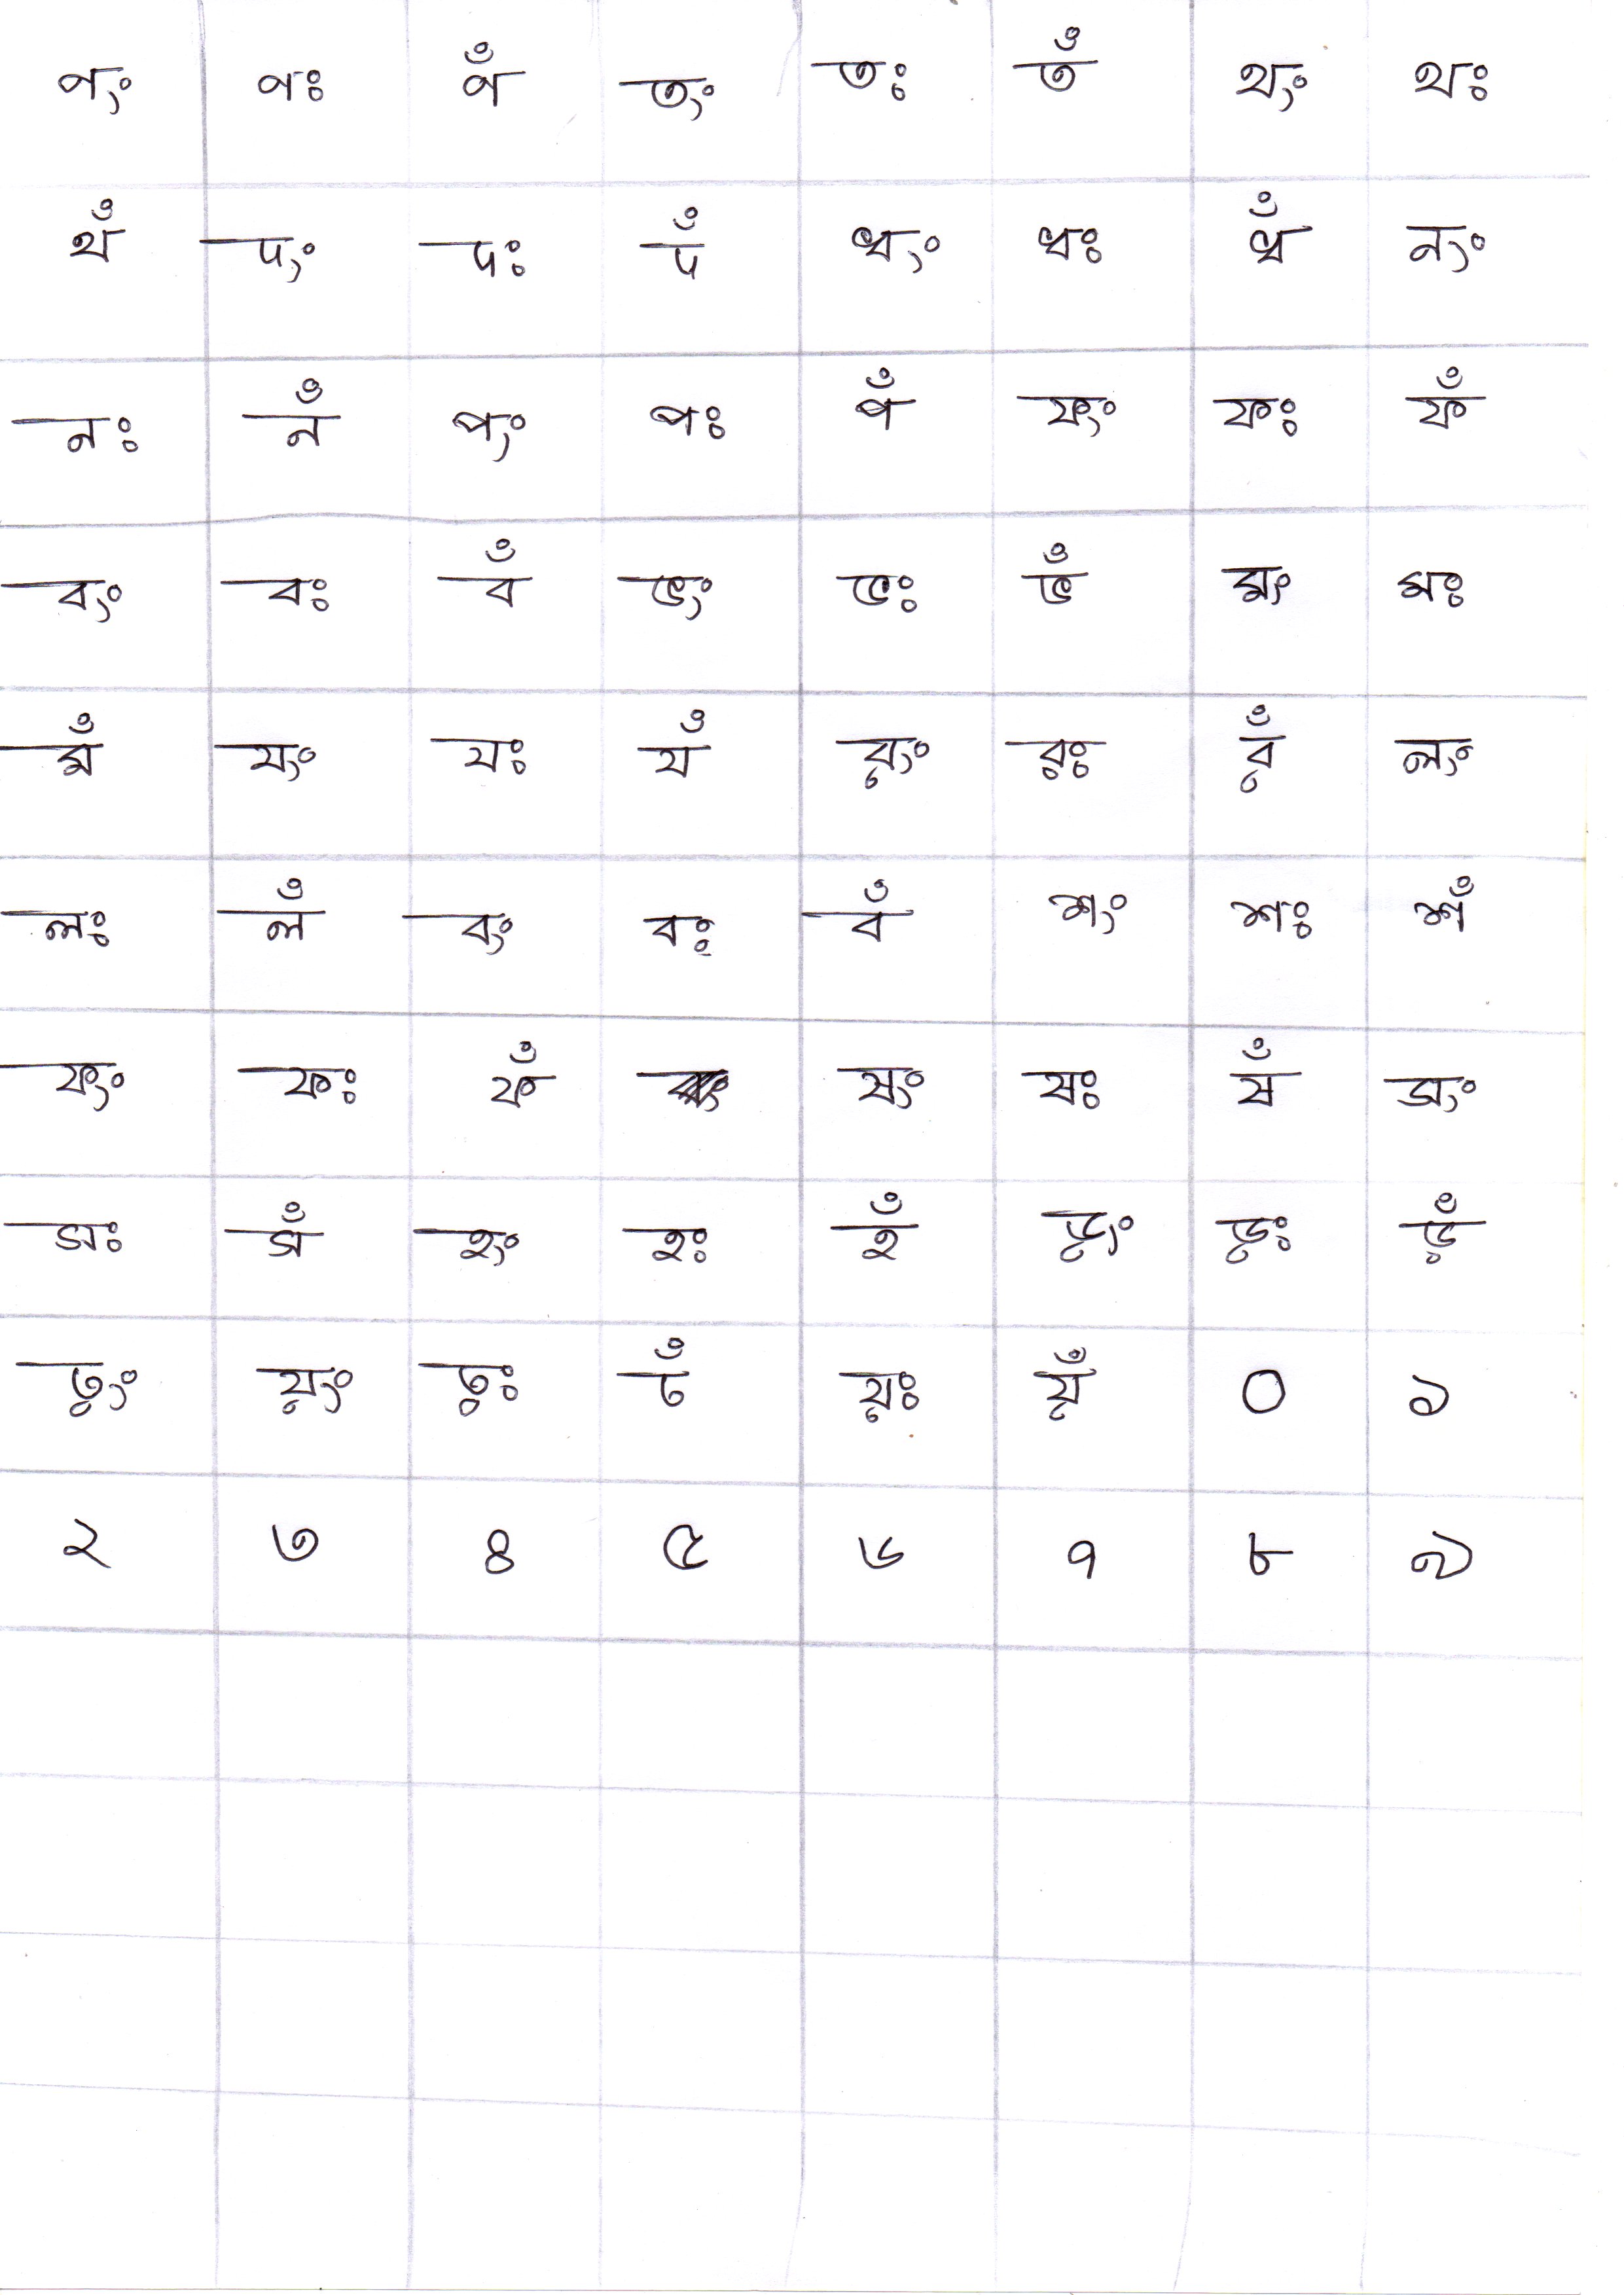 ণং ণঃ ণঁ তং তঃ তঁ থং থঃ
থঁ দং দঃ দঁ ধং ধঃ ধঁ নং
নঃ নঁ পং পঃ পঁ ফং ফঃ ফঁ
বং বঃ বঁ ভং ভঃ ভঁ মং মঃ
মঁ যং যঃ যঁ রং রঃ রঁ লং
লঃ লঁ বং বঃ বঁ শং শঃ শঁ
ফং ফঃ ফঁ ষং ষঃ ষঁ সং
সঃ সঁ হং হঃ হঁ ড়ং ড়ঃ ড়ঁ
ঢ়ং য়ং ঢ়ঃ ঢঁ য়ঃ য়ঁ ০ ১
২ ৩ ৪ ৫ ৬ ৭ ৮ ৯